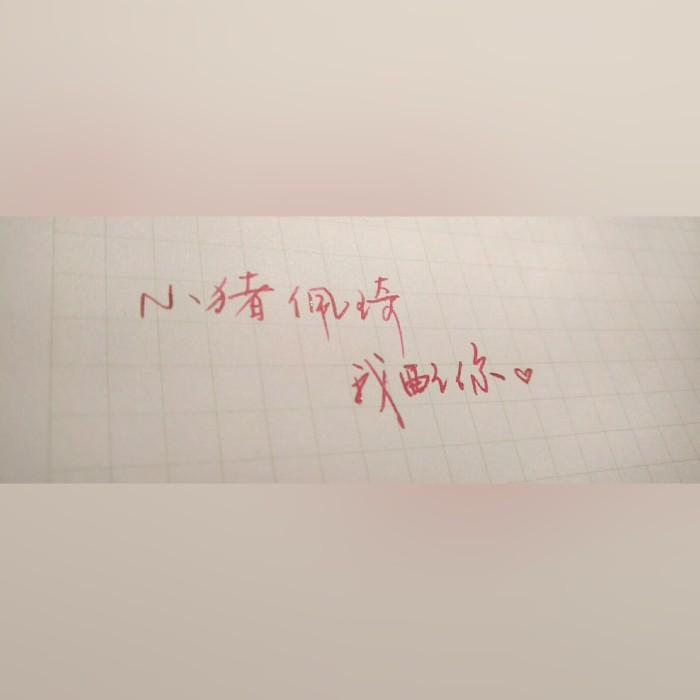 小猪佩琦
我配你♡